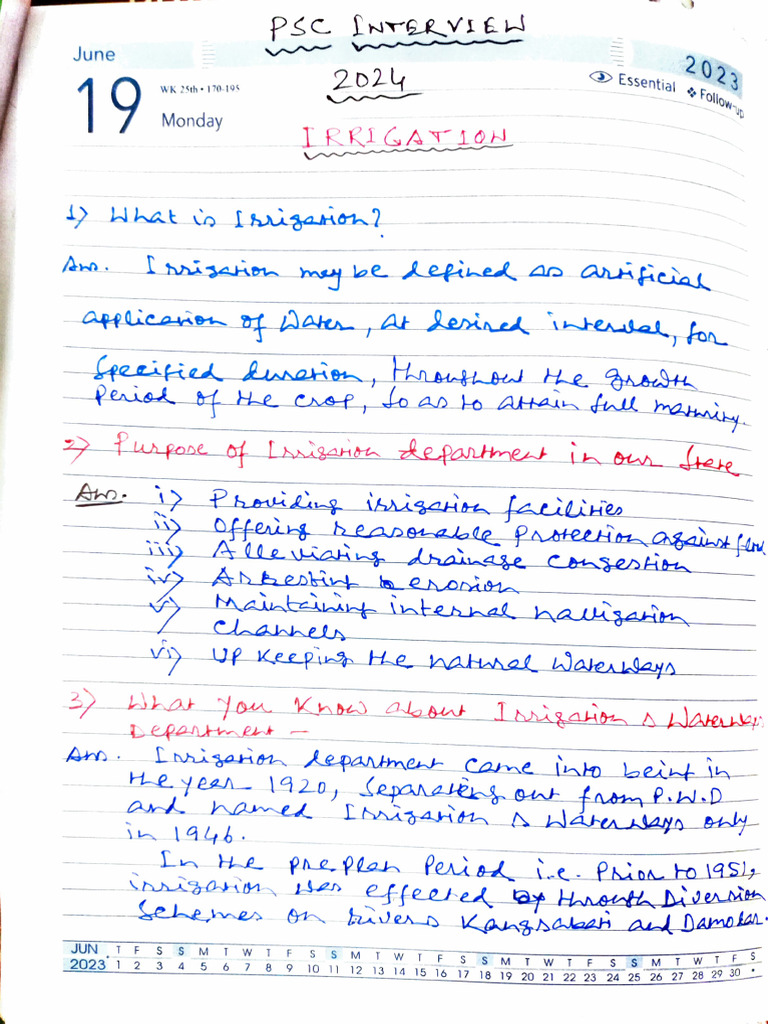 PSC INTERVIEW
June
2023
19
WK 25th • 170-195
2024
Essential
Follow-up
Monday
IRRIGATION
1) What is Irrigation?
Ans. Irrigation may be defined as artificial
application of Water, at desired interval, for
Specified duration, throughout the growth
Period of the crop, so as to attain full maturity.
2) Purpose of Irrigation department in our State
Ans. i) Providing irrigation facilities
ii) Offering reasonable protection against
iii) Alleviating drainage congestion
iv) Arresting erosion
v) Maintaining internal navigation
Channels
vi) Up keeping the natural Waterways
3) What You Know about Irrigation & Waterways
Department –
Ans. Irrigation department came into being in
the year 1920, Separating out from P.W.D
and named Irrigation & Waterways only
in 1946.
In the pre.plan Period i.e. Prior to 1951,
irrigation was effected through Diversion
Schemes on rivers Kangsabati and Damodar.
JUN T F S S M T W T F S S M T W T F S S M T W T F S S M T W T F S
2023 1 2 3 4 5 6 7 8 9 10 11 12 13 14 15 16 17 18 19 20 21 22 23 24 25 26 27 28 29 30 •